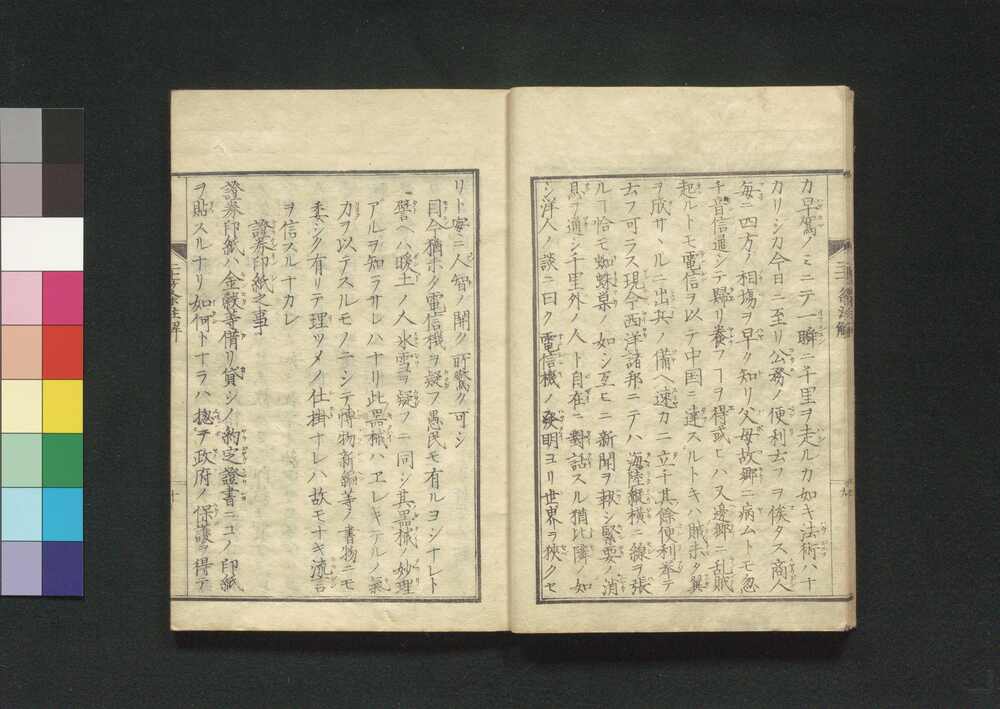 カ早駕ノミニテ一瞬ニ千里ヲ走ルカ如キ法術ハナ
カリシカ今日ニ至リ公務ノ便利去フヲ俟タス商人
毎ニ四方ノ相塲ヲ早ク知リ父母故郷ニ病ムトモ忽
チ音信通シテ歸リ養フヿヲ得或ヒハ又邊鄙ニ乱賊
起ルトモ電信ヲ以テ中国ニ達スルトキハ賊未タ翼
ヲ成サヽルニ出兵ノ備ヘ速カニ立チ其餘便利挙テ
去フ可ラス現今西洋諸邦ニテハ海陸縦横ニ線ヲ張
ルヿ恰モ蜘蛛巣ノ如シ互ヒニ新聞ヲ報シ緊要ノ消
息ヲ通シ千里外ノ人ト自在ニ對話スル猶比隣ノ如
シ洋人ノ談ニ曰ク電信機ノ発明ヨリ世界ヲ狹クセ
九
リト寔ニ人智ノ開ク可驚可シ
目今猶ホク電信機ヲ疑フ愚民モ有ルヨシナレト
譬ヘハ暖土ノ人氷雪ヲ疑フニ同シ其器械ノ妙理
アルヲ知ラサレハナリ此器械ハヱレキテルノ氣
力ヲ以テスルモノニシテ博物新編等ノ書物ニモ
委シク有リテ理ツメノ仕掛ナレハ故モナキ流言
ヲ信スルナカレ
證券印紙之事
證券印紙ハ金穀等借リ貸シノ約定證書ニコノ印紙
ヲ貼スルナリ如何トナラハ揔テ政府ノ保護ヲ得テ
十